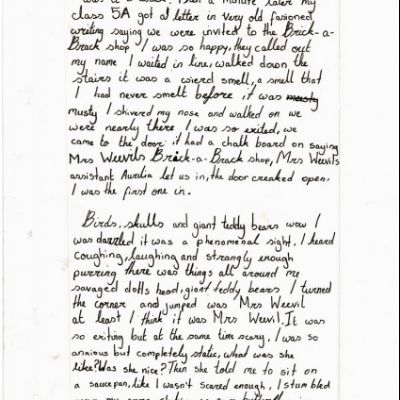 later my
class 5A got a letter in very old fasioned
writing saying we were invited to the Brick-a-
Brack shop I was so happy, they called out
my name I waited in line, walked down the
stairs it was a wierd smell, a smell that
I had never smelt before it was musty
musty I shivered my nose and walked on we
were nearly there I was so exited, we
came to the door it had a chalk board on saying
Mrs Weevils Brick-a-Brack shop, Mrs Weevils
assistant Aurelia let us in, the door creaked open.
I was the first one in.
Birds, skulls and giant teddy bears wow I
was dazzled it was a phenomenal sight. I heard
coughing, laughing and strangly enough
purring there was things all around me
savaged dolls head, giant teddy bears I turned
the corner and jumped was Mrs Weevil
at least I think it was Mrs Weevil. It was
so exiting but at the same time scary, I was so
anxious but completely static, what was she
like? Was she nice? Then she told me to sit on
a saucepan, like I wasn't scared enough, I stumbled